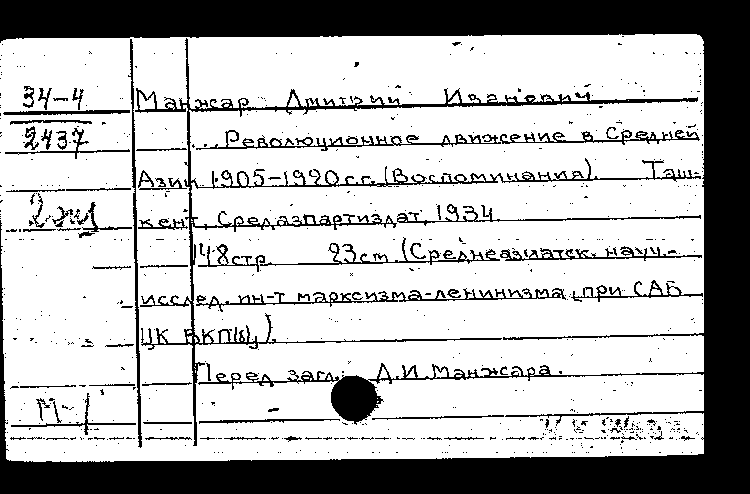 34-4 Манжар Дмитрий Иванович
2437 ... Революционное движение в Средней
Азии 1905-1920 г.г. (Воспоминания). Таш-
2 экз кент, Средазпартиздат, 1934
148 стр. 23 см. (Среднеазиатск. науч.-
исслед. ин-т марксизма-ленинизма, при САБ
ЦК ВКП(б),).
Перед загл.: Д.И. Манжара.
М-1